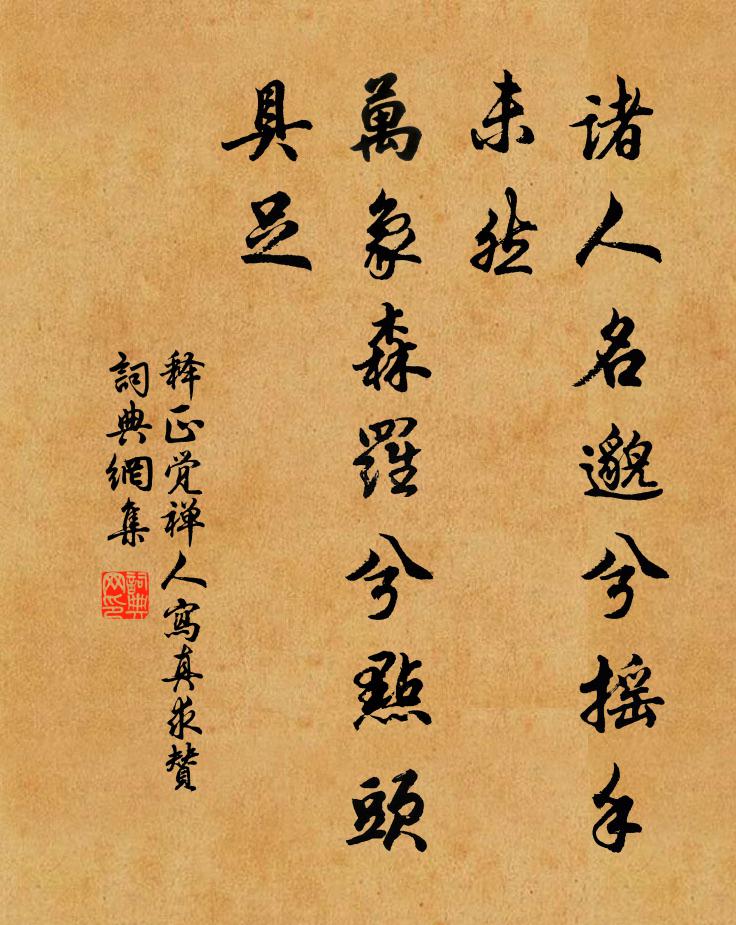 諸人名邈兮摇手
未然
萬象森羅兮點頭
具足
释正覚禅人寫真求贊
詞典網集
詞典网印